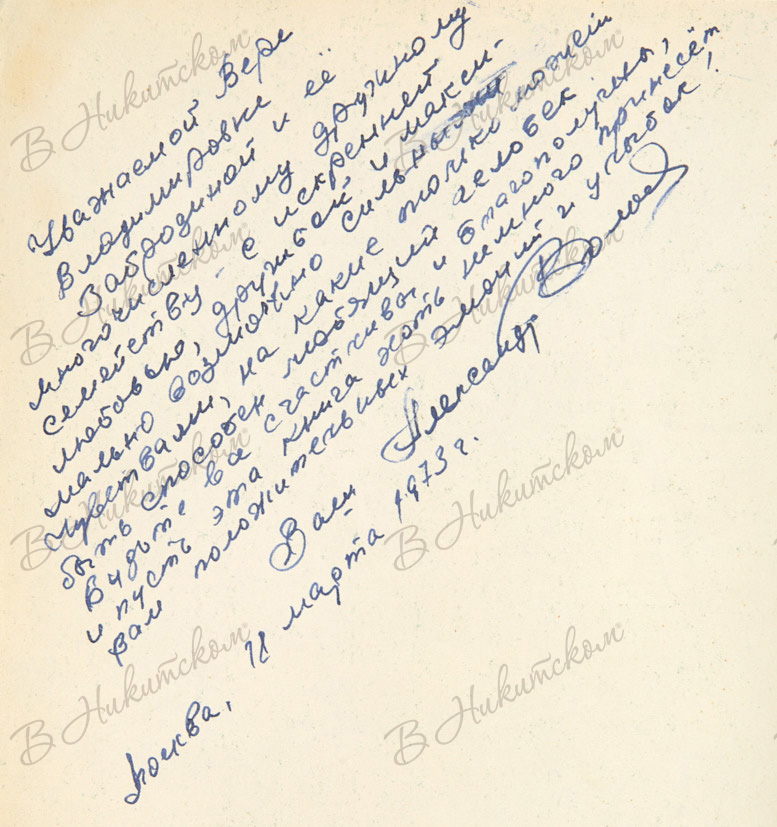 Уважаемой Вере
Владимировне
Забродиной и её
многочисленному дружному
семейству - с искренней
любовью, дружбой и макси-
мально возможно сильными
чувствами, на какие только может
быть способен любящий человек.
Будьте все счастливы и благополучны,
и пусть эта книга хоть немного принесёт
вам положительных эмоций и улыбок!
Ваш Александр
Москва, 11 марта 1973 г.
В Никитском
В Никитском
В Никитском
В Никитском
В Никитском
В Никитском
В Никитском
В Никитском